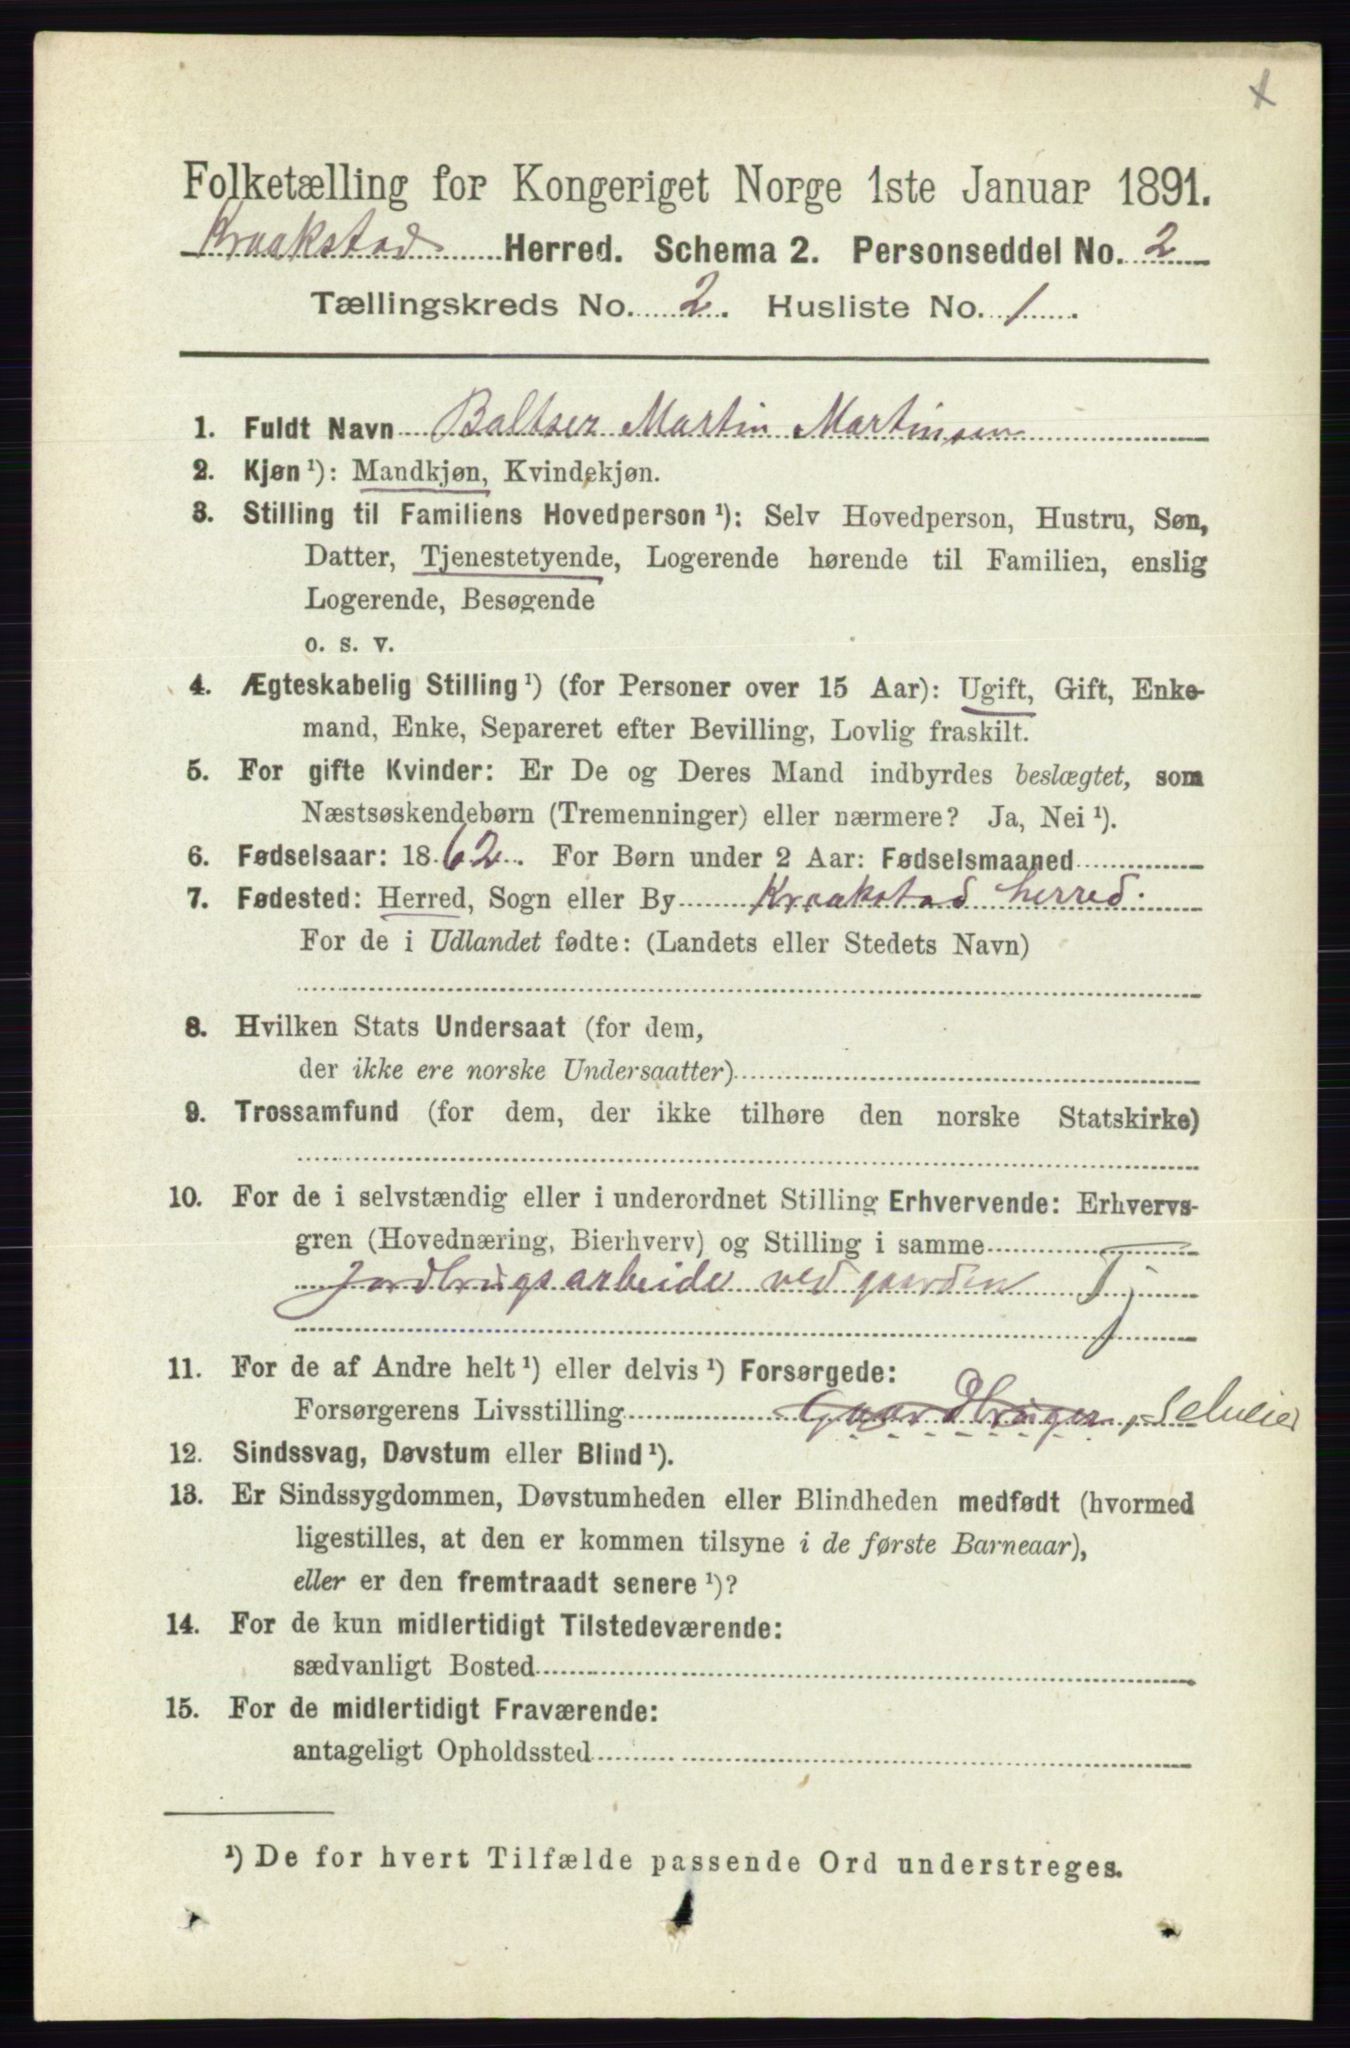 Folketælling for Kongeriget Norge 1ste Januar 1891.
Kraakstad Herred. Schema 2. Personseddel No. 2
Tællingskreds No. 2. Husliste No. 1.
1. Fuldt Navn Baltser Martin Martinsen
2. Kjøn¹): Mandkjøn, Kvindekjøn.
3. Stilling til Familiens Hovedperson¹): Selv Hovedperson, Hustru, Søn,
Datter, Tjenestetyende, Logerende hørende til Familien, enslig
Logerende, Besøgende
o. s. v.
4. Ægteskabelig Stilling¹) (for Personer over 15 Aar): Ugift, Gift, Enke-
mand, Enke, Separeret efter Bevilling, Lovlig fraskilt.
5. For gifte Kvinder: Er De og Deres Mand indbyrdes beslægtet, som
Næstsøskendebørn (Tremenninger) eller nærmere? Ja, Nei¹).
6. Fødselsaar: 1862. For Børn under 2 Aar: Fødselsmaaned
7. Fødested: Herred, Sogn eller By Kraakstad herred.
For de i Udlandet fødte: (Landets eller Stedets Navn)
8. Hvilken Stats Undersaat (for dem,
der ikke ere norske Undersaatter)
9. Trossamfund (for dem, der ikke tilhøre den norske Statskirke)
10. For de i selvstændig eller i underordnet Stilling Erhvervende: Erhvervs-
gren (Hovednæring, Bierhverv) og Stilling i samme
Jordbrugsarbeide ved gaarden Tj
11. For de af Andre helt¹) eller delvis¹) Forsørgede:
Forsørgerens Livsstilling Gaardbruger, Selveier
12. Sindssvag, Døvstum eller Blind¹).
13. Er Sindssygdommen, Døvstumheden eller Blindheden medfødt (hvormed
ligestilles, at den er kommen tilsyne i de første Barneaar),
eller er den fremtraadt senere¹)?
14. For de kun midlertidigt Tilstedeværende:
sædvanligt Bosted
15. For de midlertidigt Fraværende:
antageligt Opholdssted
¹) De for hvert Tilfælde passende Ord understreges.